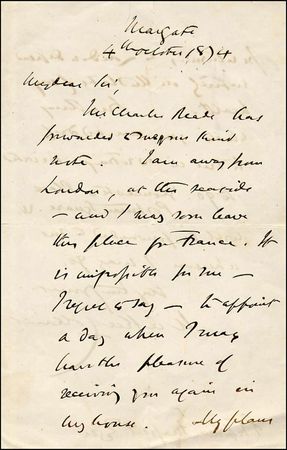 Margate
4th October 1874
My dear Sir,
Mr Charles Reade has
forwarded to me your kind
note. I am away from
London, at the seaside
– and I may soon leave
this place for France. It
is impossible for me –
I regret to say – to appoint
a day when I may
have the pleasure of
receiving you again in
my house. My plans